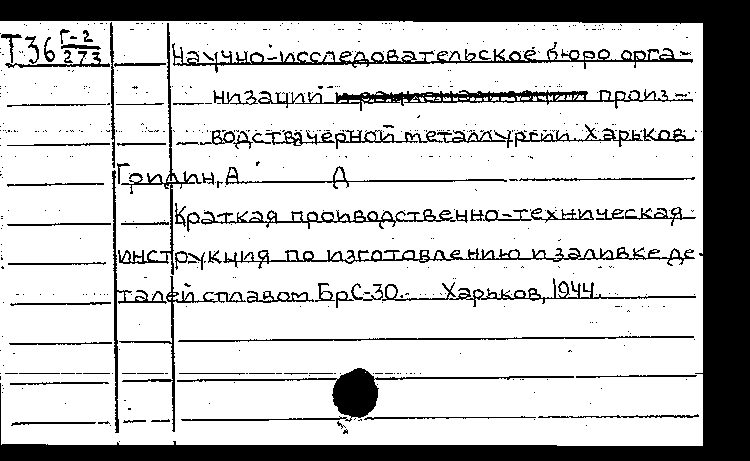 Т36 Г-2/273 Научно-исследовательское бюро орга-
низации и рационализации произ-
водства черной металлургии. Харьков
Гридин, А. Д
Краткая производственно-техническая
инструкция по изготовлению и заливке де-
талей сплавом БрС-30. Харьков, 1944.